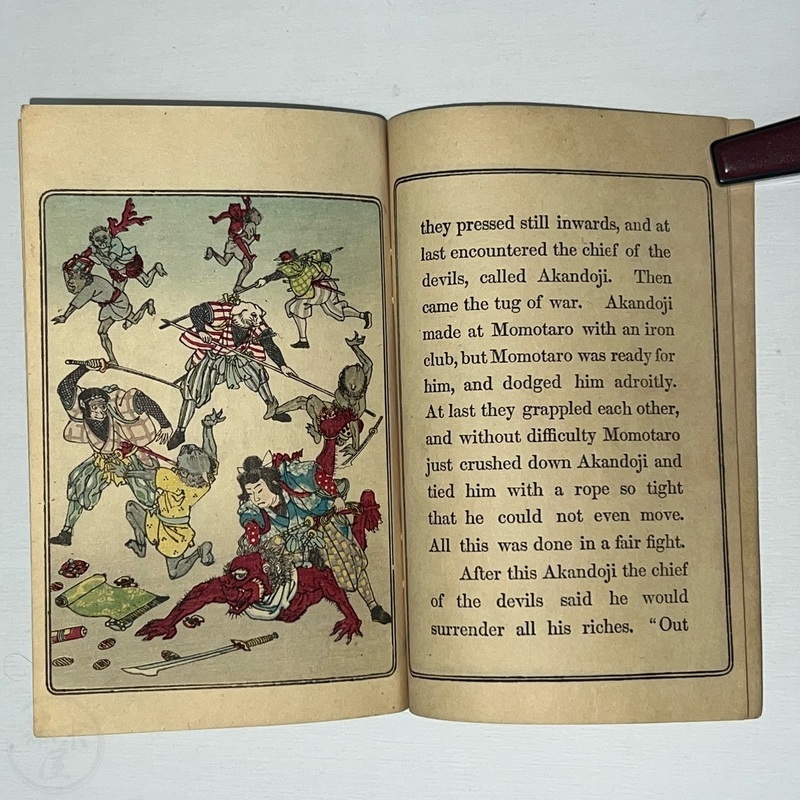 they pressed still inwards, and at
last encountered the chief of the
devils, called Akandoji. Then
came the tug of war. Akandoji
made at Momotaro with an iron
club, but Momotaro was ready for
him, and dodged him adroitly.
At last they grappled each other,
and without difficulty Momotaro
just crushed down Akandoji and
tied him with a rope so tight
that he could not even move.
All this was done in a fair fight.
After this Akandoji the chief
of the devils said he would
surrender all his riches. “Out